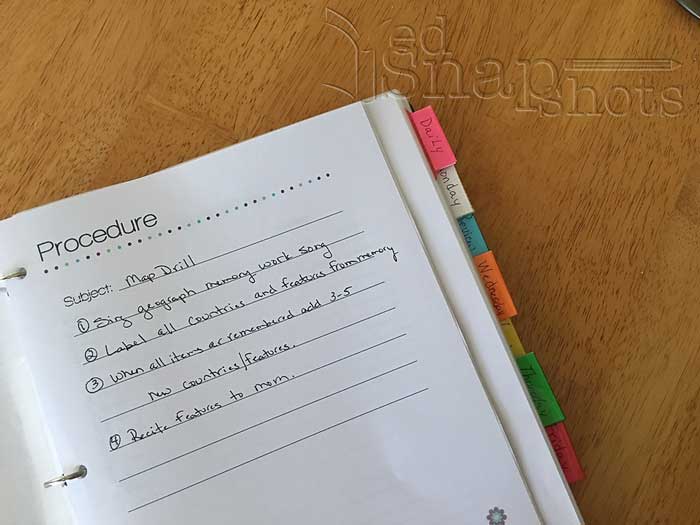 ed
Snap
shots
Daily
onday
Review
Wednesday
Thursday
riday
Procedure
Subject: Map Drill
① Sing geograph memory work song
② Label all countries and features from memory
③ When all items are remembered add 3-5
new countries/features.
④ Recite features to mom.